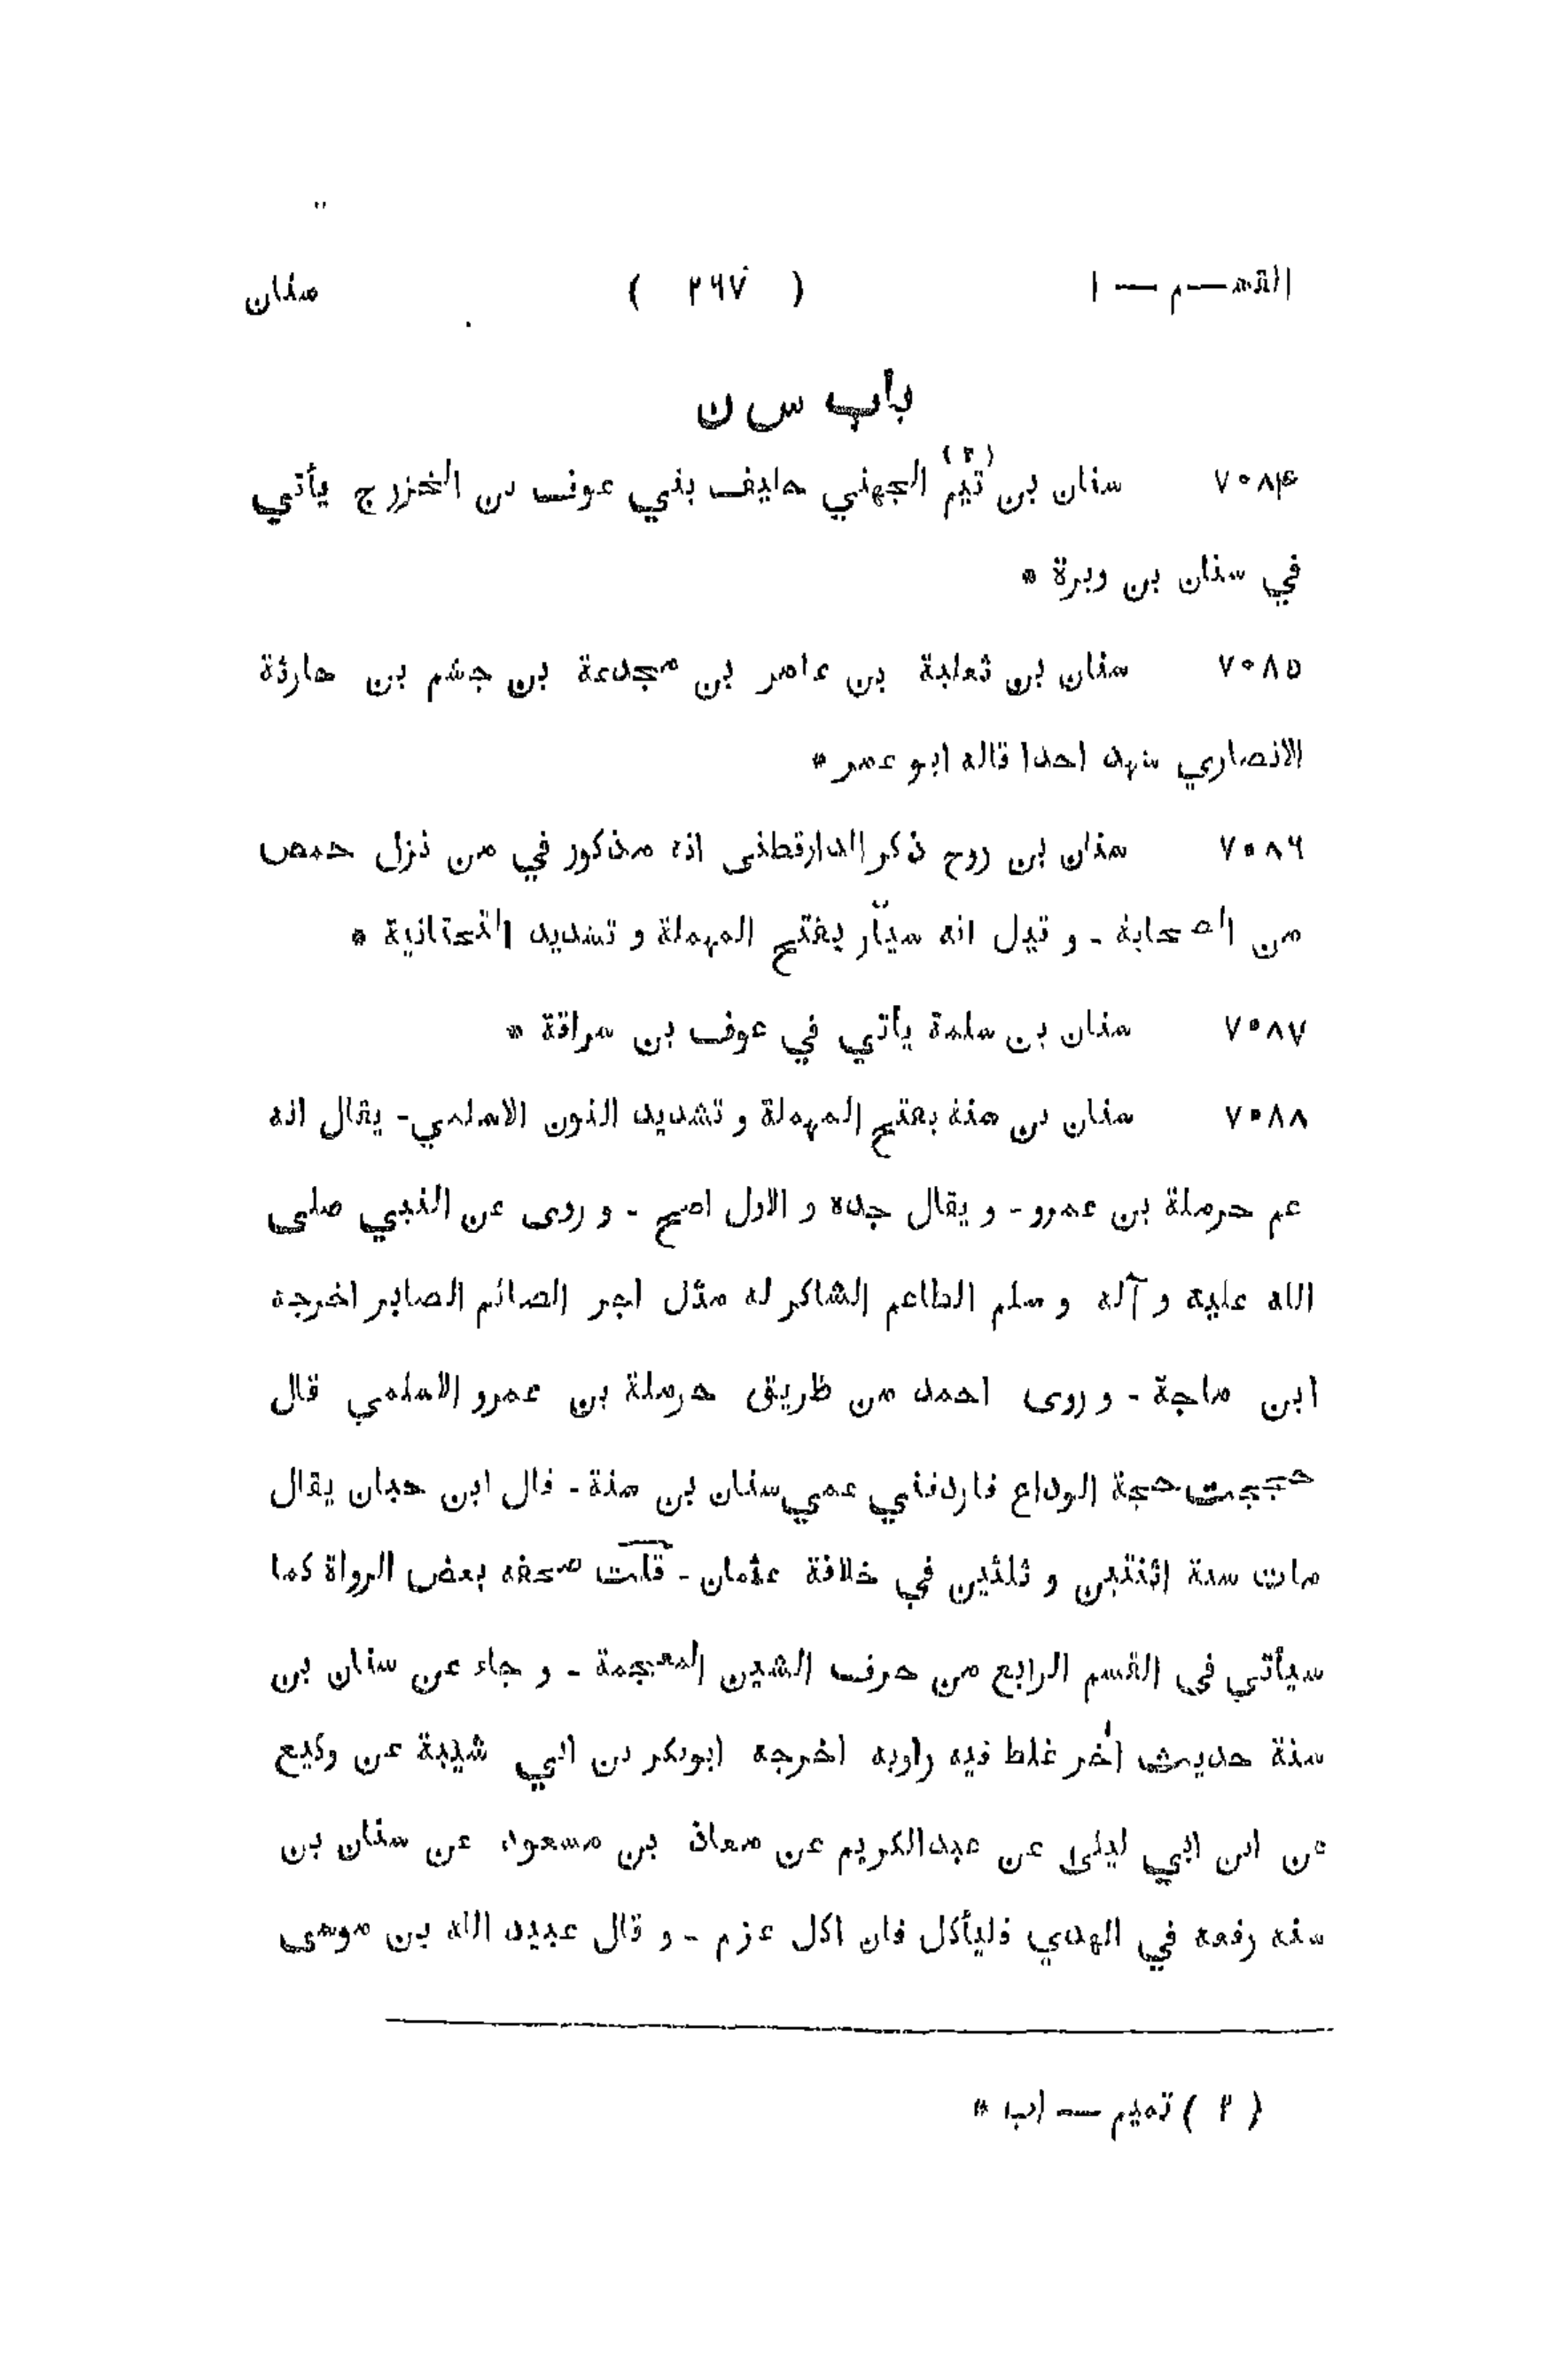 القسم — ۱ ( ۲۶۷ ) سنان
باب س ن
۷۰۸۴ سنان بن تيم (۲) الجهني حليف بني عوف بن الخزرج يأتي
في سنان بن وبرة *
۷۰۸۵ سنان بن ثعلبة بن عامر بن مجدعة بن جشم بن حارثة
الانصاري شهد احدا قاله ابو عمر *
۷۰۸۶ سنان بن روح ذكر الدارقطنى انه مذكور في من نزل حمص
من الصحابة - و قيل انه سيّار بفتح المهملة و تشديد التحتانية *
۷۰۸۷ سنان بن سلمة يأتي في عوف بن سراقة *
۷۰۸۸ سنان بن سنة بفتح المهملة و تشديد النون الاسلمي - يقال انه
عم حرملة بن عمرو - و يقال جده و الاول اصح - و روى عن النبي صلى
الله عليه و آله و سلم الطاعم الشاكر له مثل اجر الصائم الصابر اخرجه
ابن ماجة - و روى احمد من طريق حرملة بن عمرو الاسلمي قال
حججت حجة الوداع فاردفني عمي سنان بن سنة - قال ابن حبان يقال
مات سنة اثنتين و ثلثين في خلافة عثمان - قلت صحفه بعض الرواة كما
سيأتي فى القسم الرابع من حرف الشين المعجمة - و جاء عن سنان بن
سنة حديث اٰخر غلط فيه راويه اخرجه ابوبكر بن ابي شيبة عن وكيع
عن ابن ابي ليلى عن عبدالكريم عن معاذ بن مسعود عن سنان بن
سنه رفعه في الهدي فليأكل فان اكل عزم - و قال عبيد الله بن موسى
( ۲ ) تميم — اب *